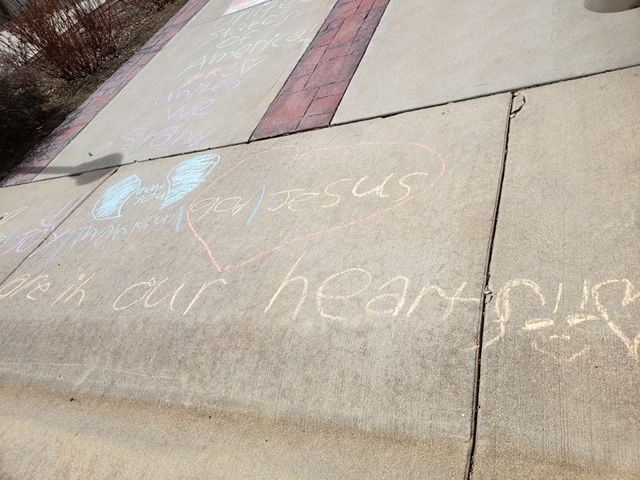 of
America
united
we
stand
thank
you
thankful for Jesus
are in our hearts